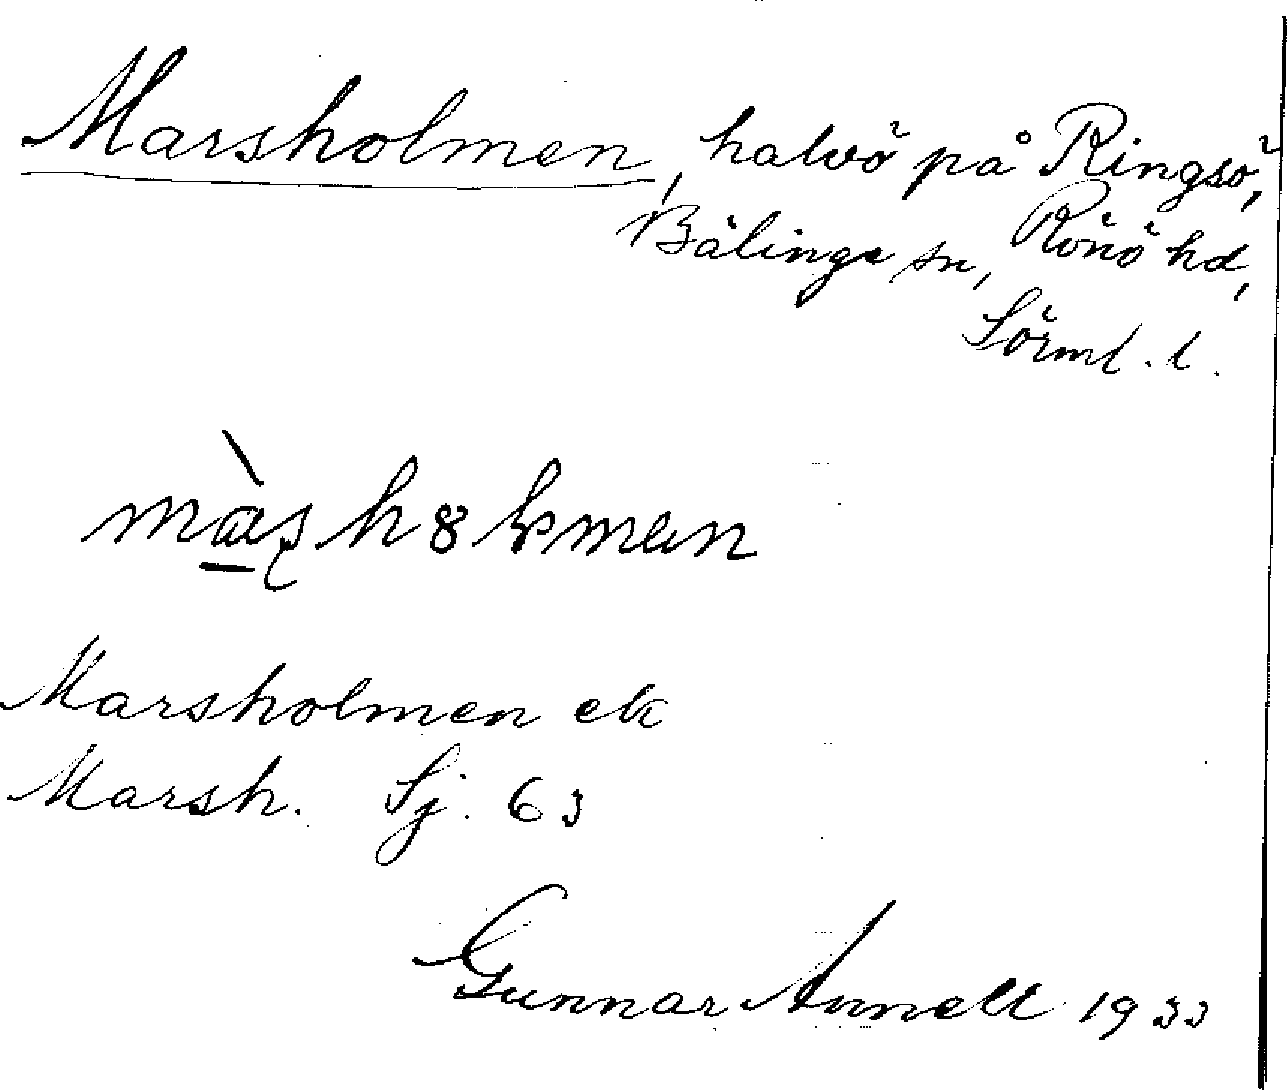 Marsholmen, halvö på Ringsö,
Bälinge sn, Rönö hd,
Sörml. l.
Marsholmen ek
Marsh. Sj. 63
Gunnar Annell 1933